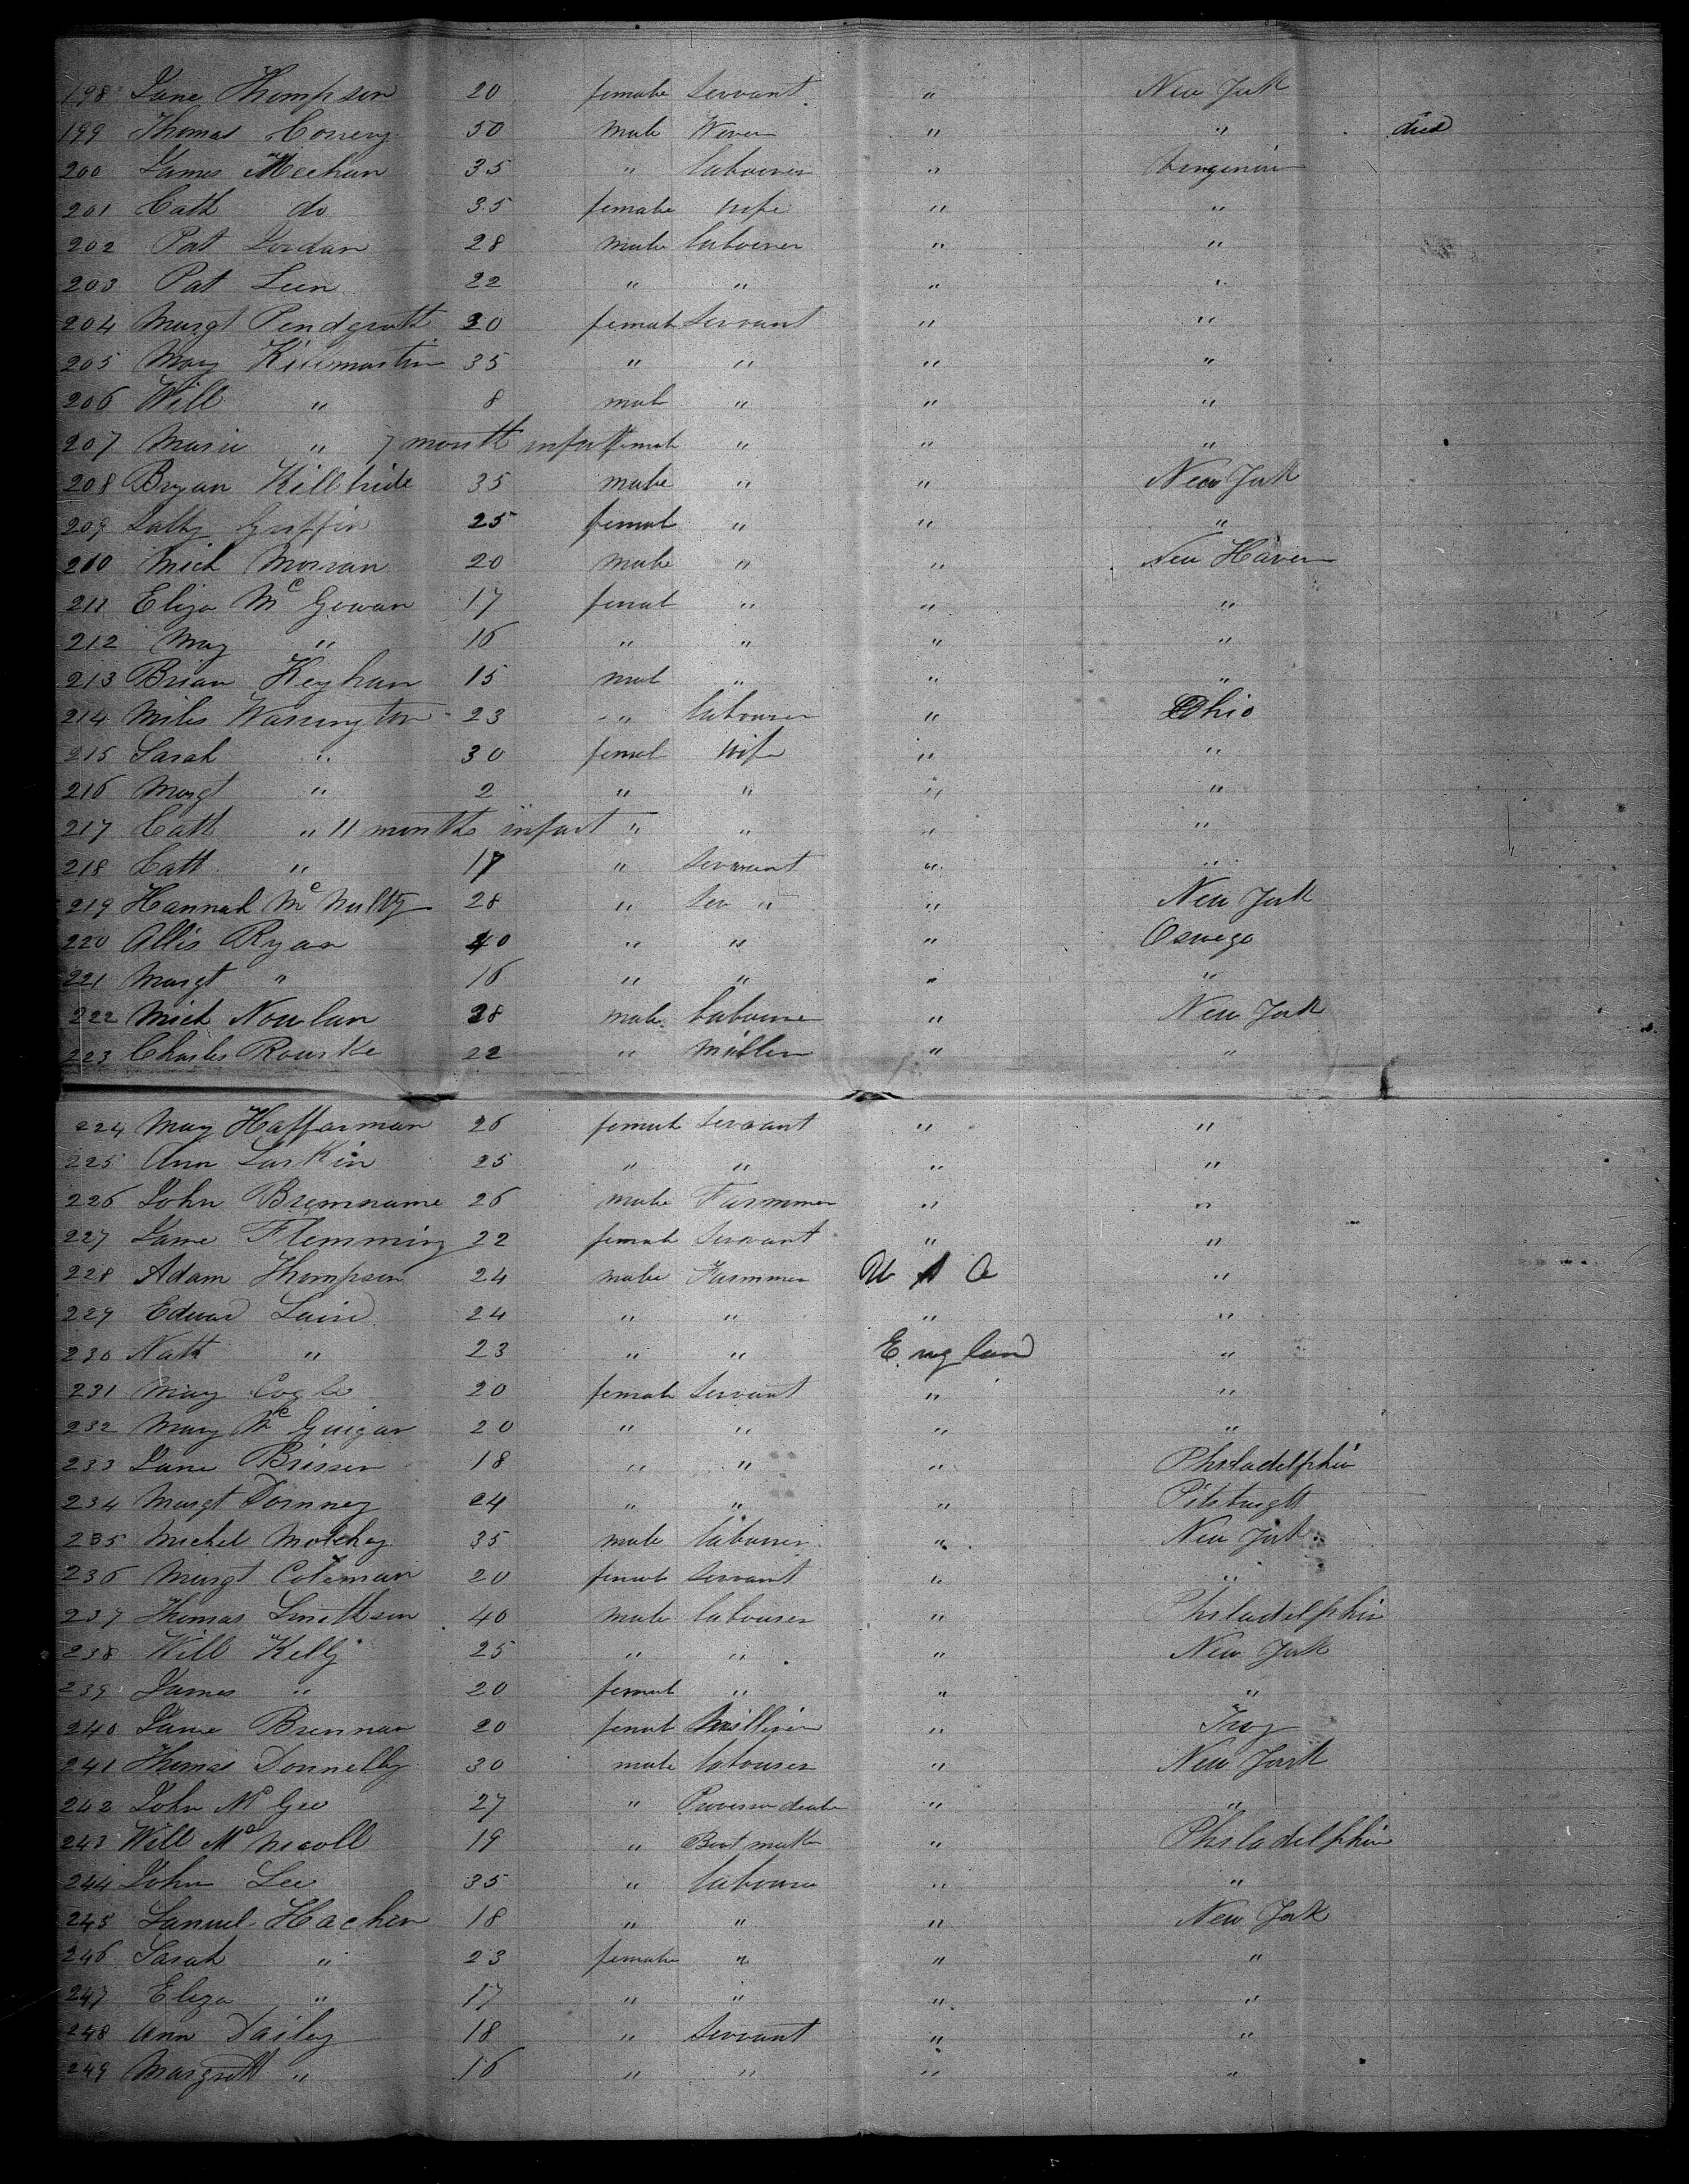 198 Jane Thompson 20 female Servant " New York
199 Thomas Conery 50 male Wever " " died
200 James Meehan 35 " labourer " Virginia
201 Cath do 35 female wife " "
202 Pat Jordan 28 male labourer " "
203 Pat Leen 22 " " " "
204 Margt Pendgrath 30 female Servant " "
205 Mary Killmartin 35 " " " "
206 Will " 8 male " " "
207 Maria " 7 month infant female " " "
208 Bryan Killbride 35 male " " New York
209 Patty Griffin 25 female " " "
210 Mich Morran 20 male " " New Haven
211 Eliza Mc Gowan 17 female " " "
212 May " 16 " " " "
213 Brian Keyhan 15 male " " "
214 Miles Warrington 23 " labourer " Ohio
215 Sarah " 30 female wife " "
216 Margt " 2 " " " "
217 Cath " 11 months infant " " " "
218 Cath " 17 " Servant " "
219 Hannah Mc Nulty 28 " Ser " " New York
220 Allis Ryan 40 " " " Oswego
221 Margt " 16 " " " "
222 Mich Nowlan 28 male labourer " New York
223 Charles Rourke 22 " Miller " "
224 May Haffarman 26 female Servant " "
225 Ann Larkin 25 " " " "
226 John Bremname 26 male Farmmer " "
227 Jame Flemming 22 female Servant " "
228 Adam Thompson 24 male Farmmer U S A "
229 Edward Laird 24 " " " "
230 Nath " 23 " " England "
231 May Cogle 20 female Servant " "
232 Mary Mc Guigan 20 " " " "
233 Jane Brissen 18 " " " Philadelphia
234 Margt Dornney 24 " " " Pitsburgh
235 Michel Motchey 35 male labourer " New York
236 Margt Coleman 20 female Servant " "
237 Thomas Smithson 40 male labourer " Philadelphia
238 Will Kelly 25 " " " New York
239 James " 20 female " " "
240 Jane Brennan 20 female Milliner " Troy
241 Thomas Donnelly 30 male labourer " New York
242 John Mc Gee 27 " Provision dealer " "
243 Will Mc Nicoll 19 " Boot maker " Philadelphia
244 John Lee 35 " labourer " "
245 Samuel Hachen 18 " " " New York
246 Sarah " 23 female " " "
247 Eliza " 17 " " " "
248 Ann Dailey 18 " Servant " "
249 Margrett " 16 " " " "